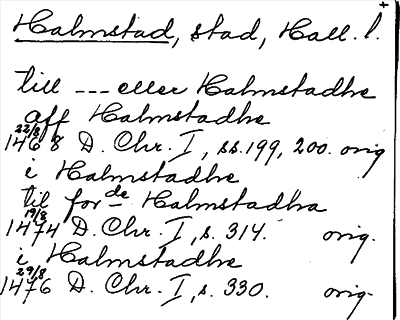 Halmstad, stad, Hall. l. +
till --- eller Halmstadhe
aff Halmstadhe
22/8 1468 D. Chr. I, ss. 199, 200. orig
i Halmstadhe
til forde Halmstadha
19/8 1474 D. Chr. I, s. 314. orig.
i Halmstadhe
29/8 1476 D. Chr. I, s. 330. orig.